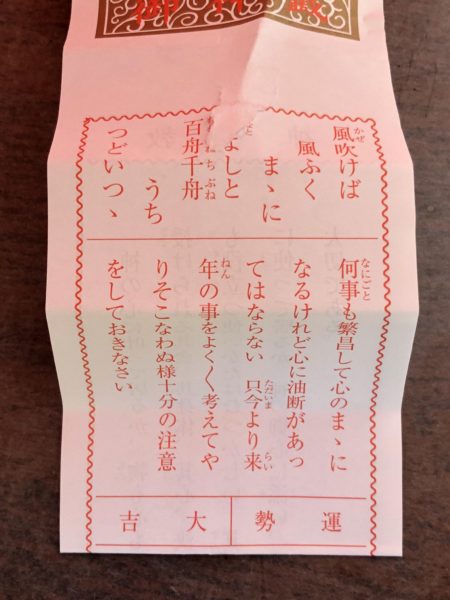 風吹けば
風ふく
まゝに
よしと
百舟千舟
うち
つどいつゝ
何事も繁昌して心のまゝに
なるけれど心に油断があっ
てはならない 只今より来
年の事をよく〱考えてや
りそこなわぬ様十分の注意
をしておきなさい
運勢
大吉